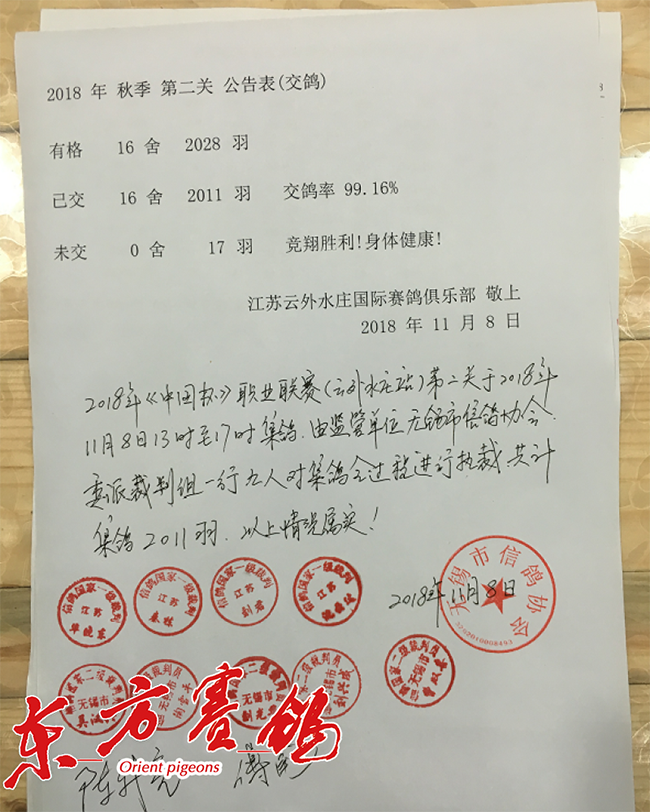 2018 年 秋季 第二关 公告表(交鸽)
有格 16 舍 2028 羽
已交 16 舍 2011 羽 交鸽率 99.16%
未交 0 舍 17 羽 竞翔胜利!身体健康!
江苏云外水庄国际赛鸽俱乐部 敬上
2018 年 11 月 8 日
2018年《中国杯》职业联赛(云外水庄站)第二关于2018年
11月8日13时至17时集鸽.由监管单位无锡市信鸽协会
委派裁判组一行九人对集鸽全过程进行执裁 共计
集鸽2011羽.以上情况属实!
2018年11月8日
无锡市信鸽协会
信鸽国家一级裁判 江苏
信鸽国家一级裁判 江苏
信鸽国家一级裁判 江苏
信鸽国家一级裁判 江苏
无锡市
无锡市
无锡市
无锡市
无锡市
东方赛鸽
Orient pigeons